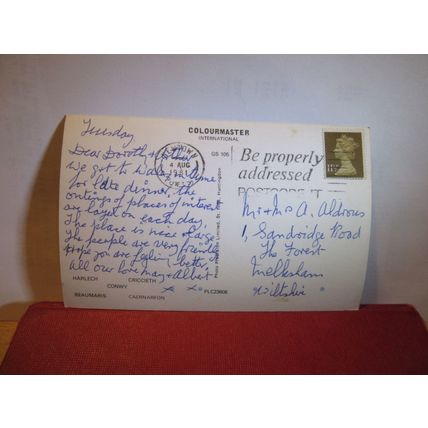 COLOURMASTER
INTERNATIONAL
GS 105
Tuesday
Dear Dorothy
We got to Wales in time
for late dinner, the
outings of places of interest
are layed on each day,
The place is nice & large
The people are very friendly
Hope you are feeling better,
All our love may & albert
x x
HARLECH CRICCIETH
CONWY
BEAUMARIS CAERNARFON
PLC23606
4 AUG
1981
GWYNEDD
Be properly
addressed
POSTCODE IT
Mr & Mrs A. Aldrous
1, Sandridge Road
The Forest
Melksham
Wiltshire